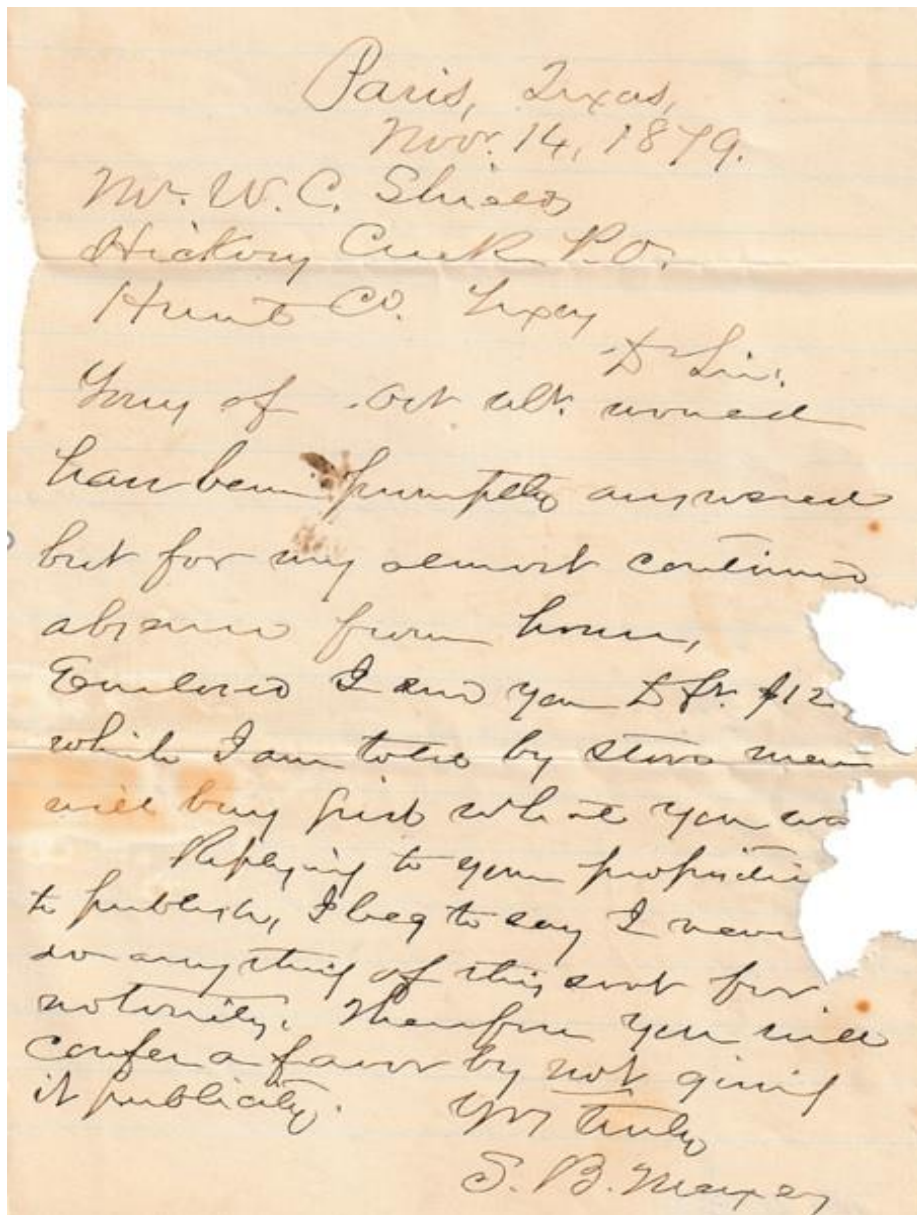 Paris, Texas,
Nov. 14, 1879.
Mr. W. C. Shields
Hickory Creek P.O.
Hunt Co. Texas
D Sir:
Yours of Oct ult. would
have been promptly answered
but for my almost continued
absence from home,
Enclosed I send you D ft. $12
which I am told by stove men
will buy just what you
Replying to your proposition
to publish, I beg to say I never
do anything of this sort for
notoriety. Therefore you will
confer a favor by not giving
it publicity.
Yrs truly
S. B. Maxey